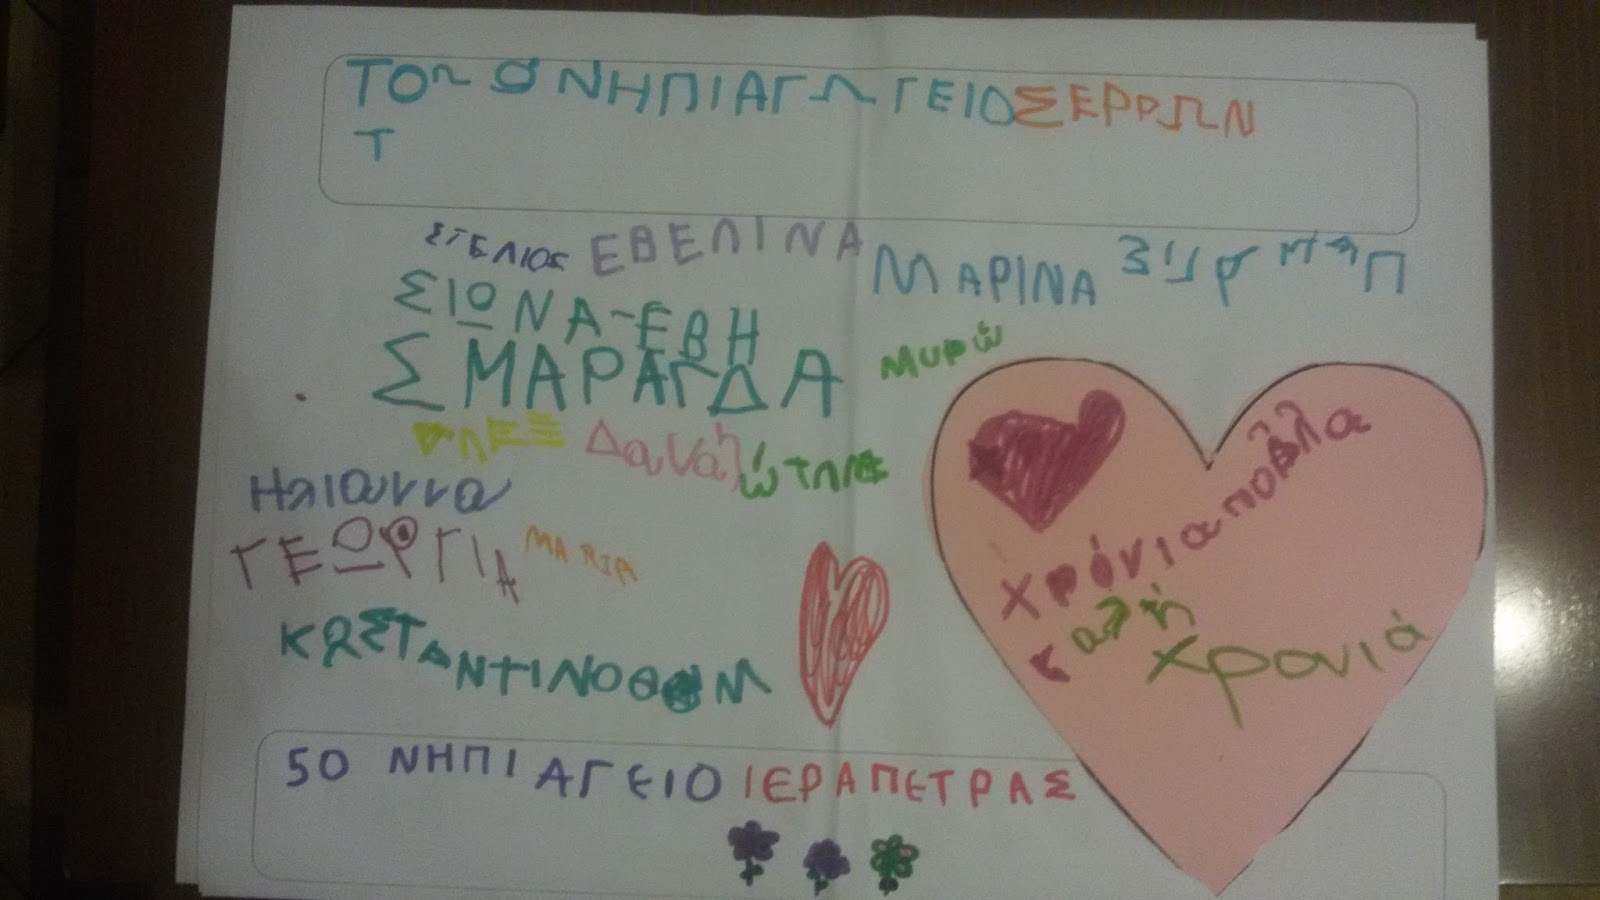 ΝΗΠΙΑΓΩΓΕΙΟ ΣΕΡΡΩΝ
Τ
ΣΤΕΛΙΟΣ ΕΒΕΛΙΝΑ ΜΑΡΙΝΑ
ΣΙΟΝΑ-ΕΒΗ
ΣΜΑΡΑΓΔΑ Μυρώ
ΑΛΕΞ Δανάη
Ηλιαννα
ΓΕΩΡΓΙΑ ΜΑRΙΑ
ΚΩΣΤΑΝΤΙΝΟΘΩΜ
Χρόνια πολλα
καλή
χρονιά
5Ο ΝΗΠΙΑΓΕΙΟ ΙΕΡΑΠΕΤΡΑΣ